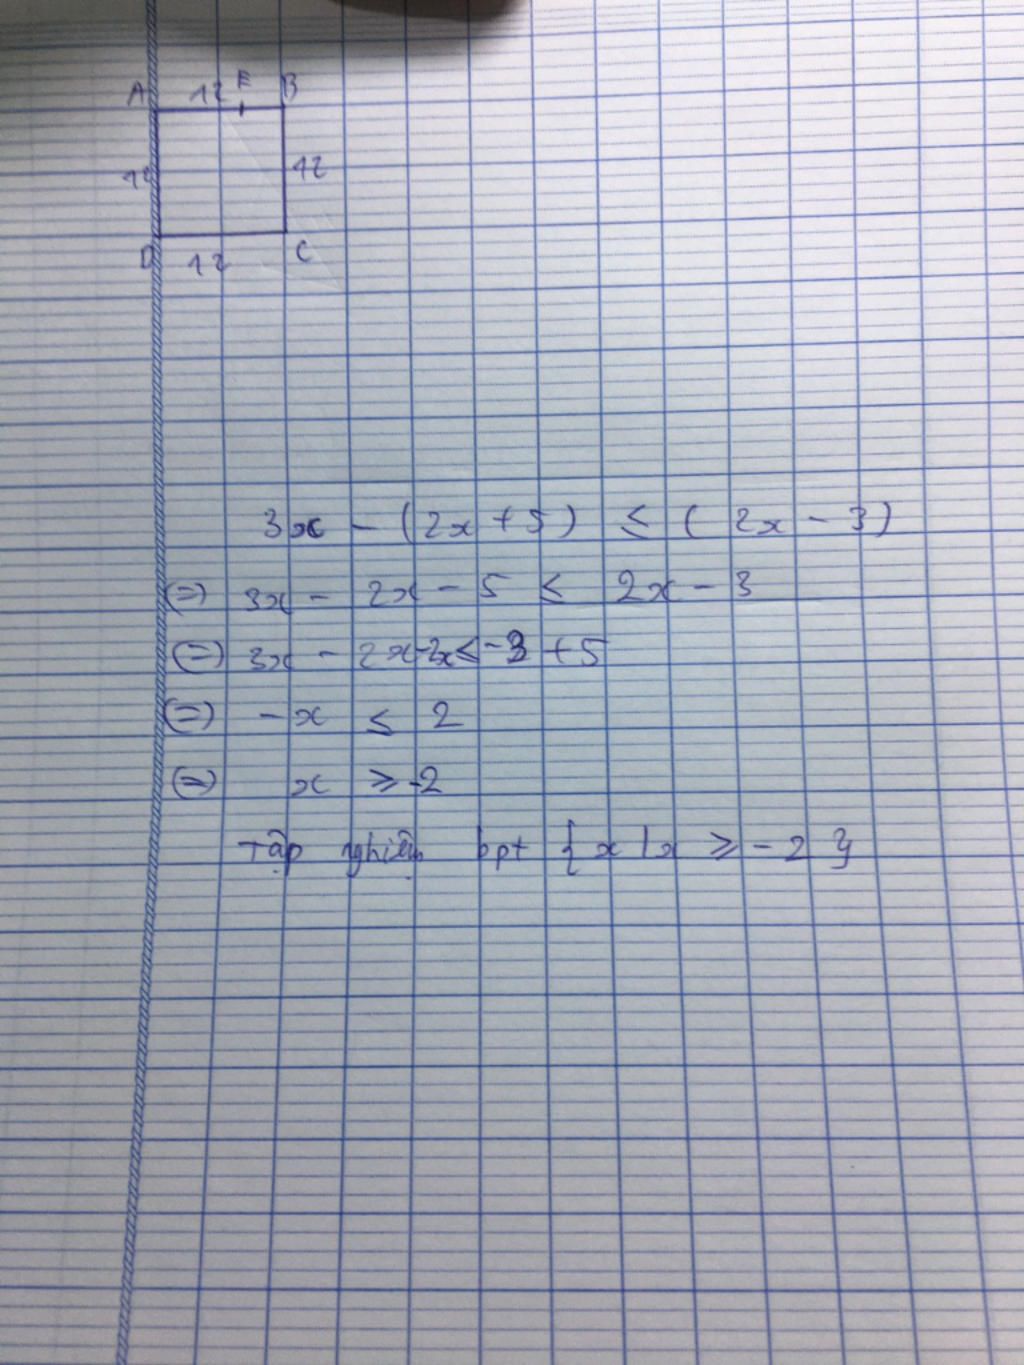 A 12 E B
12 12
D 12 C
3x - (2x + 5) ≤ (2x - 3)
(=) 3x - 2x - 5 ≤ 2x - 3
(=) 3x - 2x - 2x ≤ -3 + 5
(=) -x ≤ 2
(=) x ≥ -2
Tập nghiệm bpt {x | x ≥ -2}